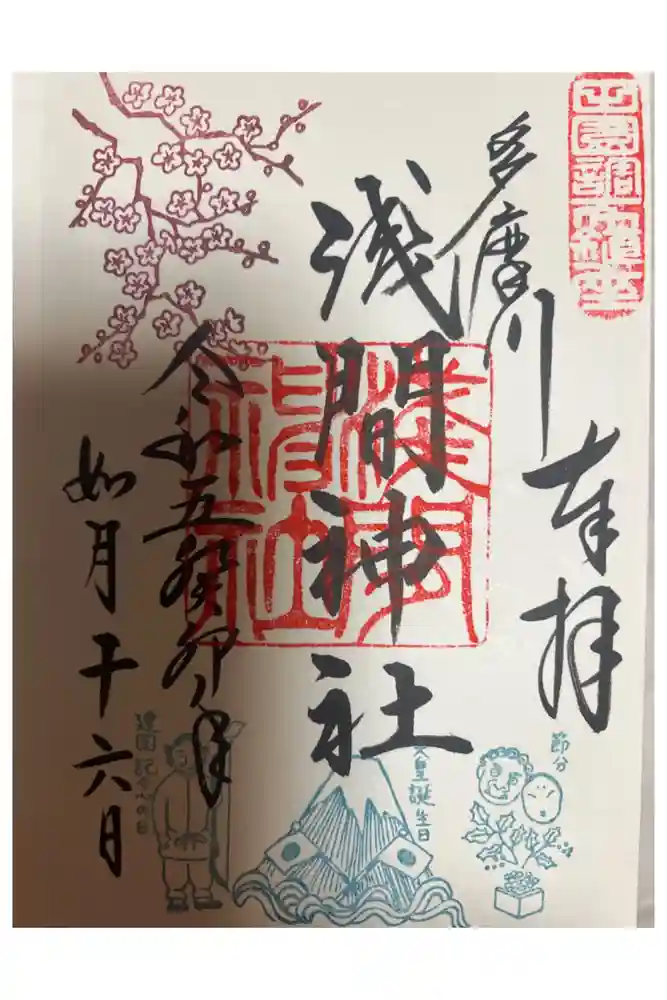 田園調布鎮座
奉拝
多摩川
浅間神社
浅間神社
令和五癸卯年
如月十六日
節分
天皇誕生日
建国記念の日